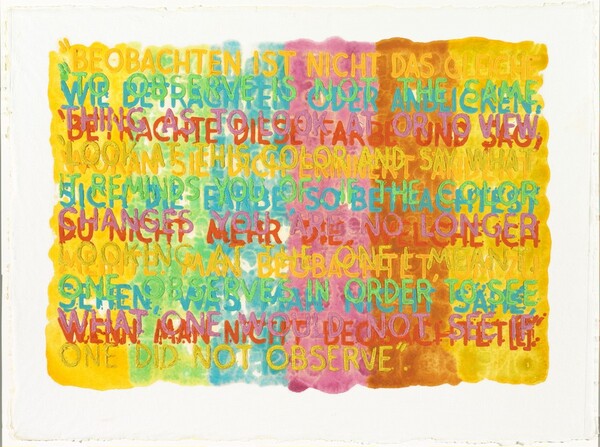 "BEOBACHTEN IST NICHT DAS GLEICHE
"TO OBSERVE IS NOT THE SAME
WIE BETRACHTEN ODER ANBLICKEN.
THING AS TO LOOK AT OR TO VIEW.
'BETRACHTE DIESE FARBE UND SAG,
'LOOK AT THIS COLOR AND SAY WHAT
SIE DICH ERINNERT
IT REMINDS YOU OF' IF THE COLOR
SICH DIE FARBE SO BETRACHTEST
CHANGES YOU ARE NO LONGER
DU NICHT MEHR DIE, WELCHE ICH
LOOKING AT THE ONE I MEANT.
MAN BEOBACHTET,
ONE OBSERVES IN ORDER TO SEE
SEHEN, WAS MAN NICHT SÄHE,
WHAT ONE WOULD NOT SEE IF
WENN MAN NICHT BEOBACHTET[E]."
ONE DID NOT OBSERVE".